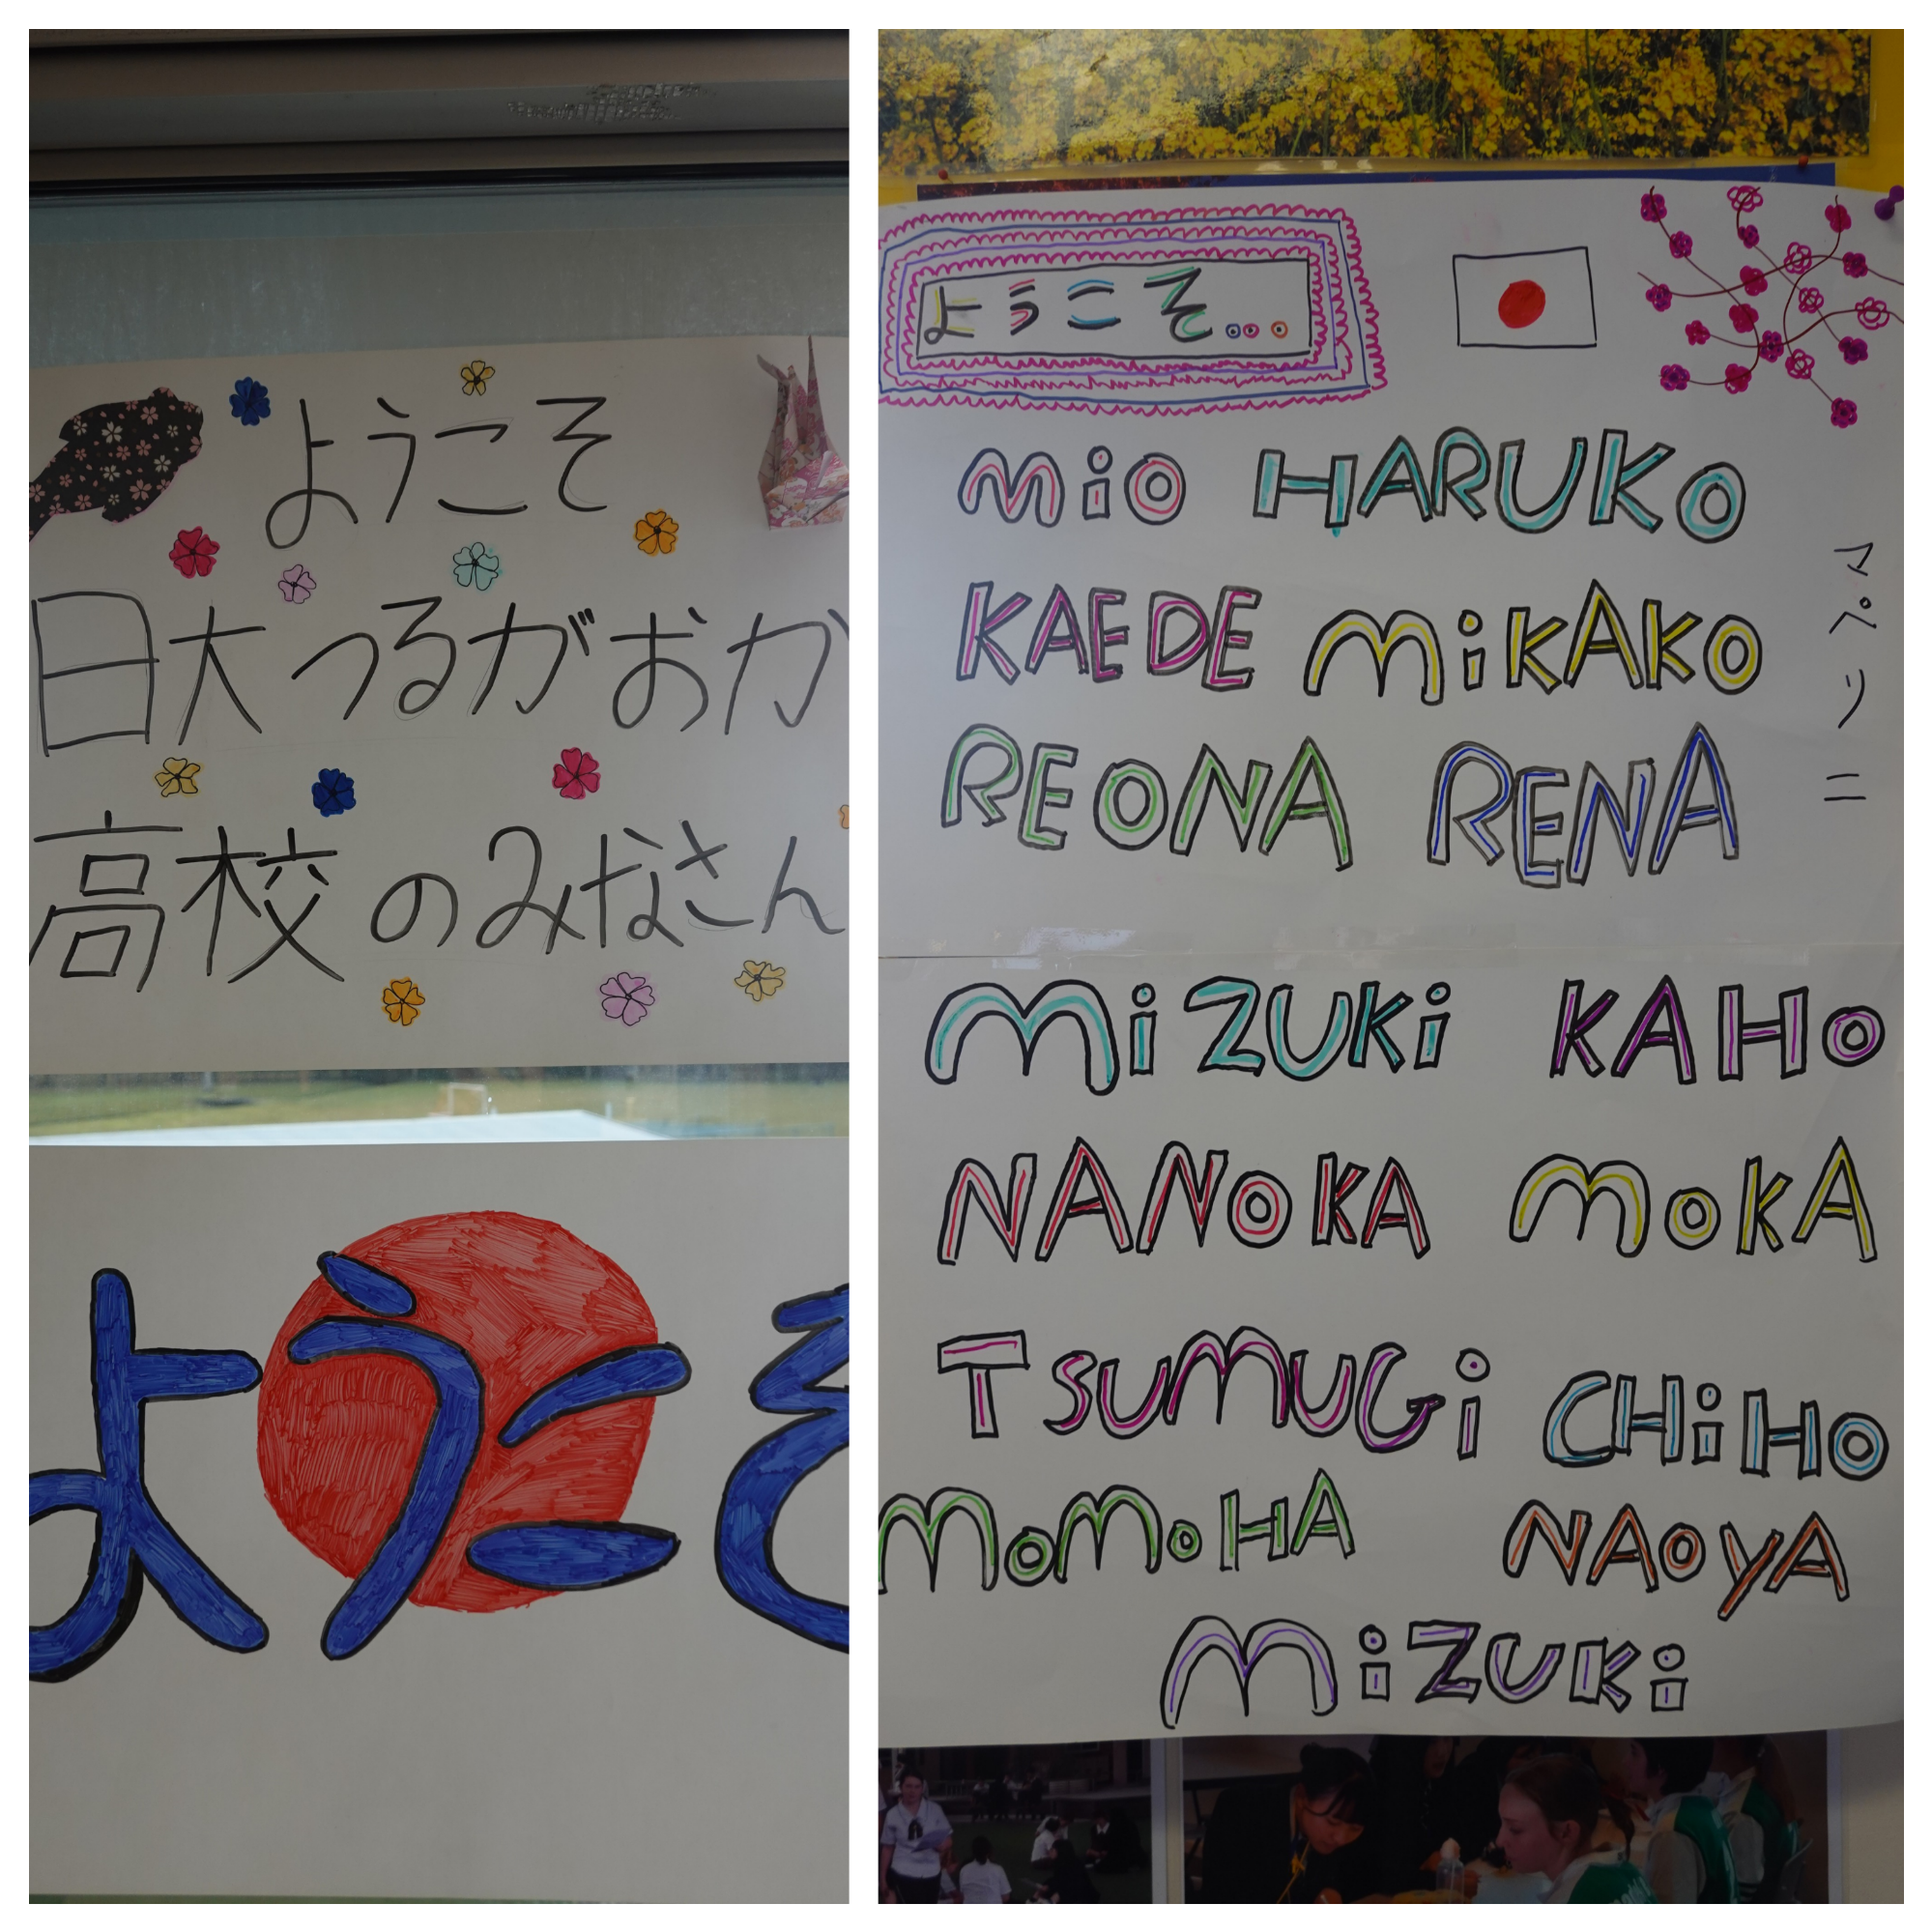 ようこそ
日大つるがおか
高校のみなさん
ようこそ
ようこそ...
MiO HARUKO
KAEDE MiKAKO
REONA RENA
マペリニ
MiZUKi KAHO
NANOKA MOKA
TSUMUGi CHiHO
MOMOHA NAOYA
MiZUKi